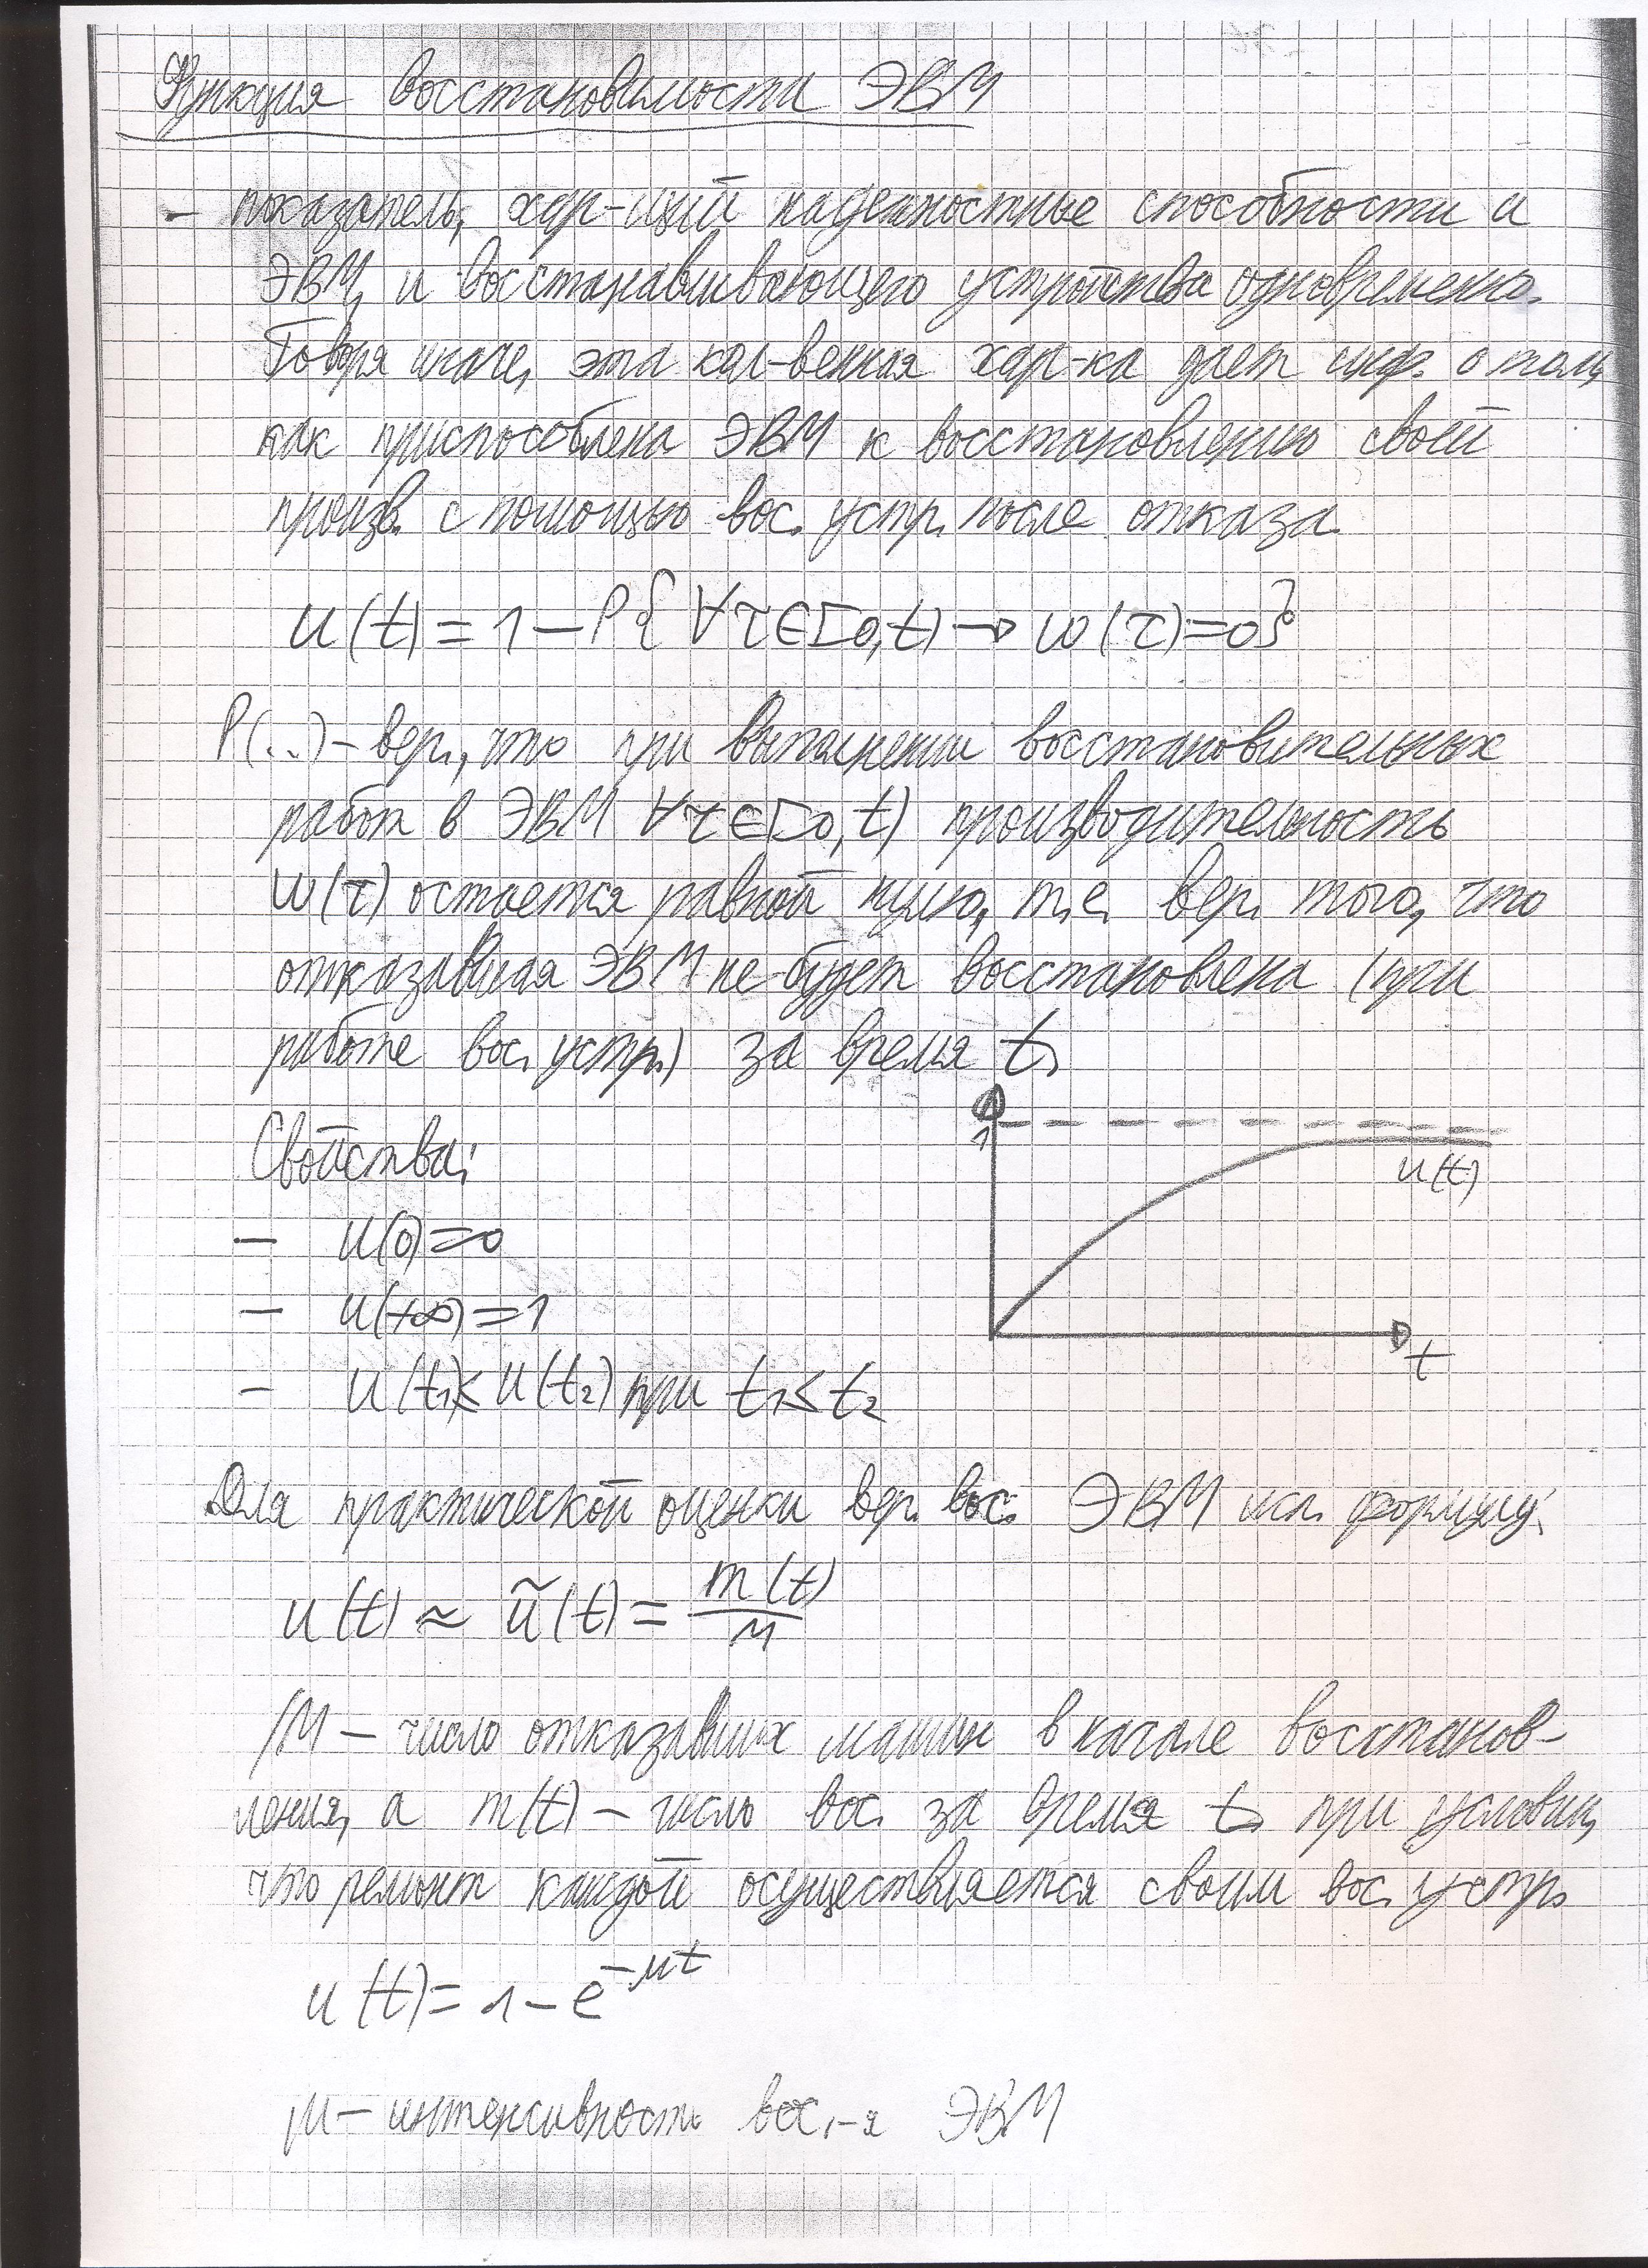 Функция восстановимости ЭВМ
- показатель, хар-щий надежностные способности и
ЭВМ, и восстанавливающего устройства одновременно.
Говоря иначе, эта кол-венная хар-ка дает инф. о том,
как приспособлена ЭВМ к восстановлению своей
произв. с помощью вос. устр. после отказа.
u(t) = 1 - P{∀τ∈[0,t) → ω(τ)=0}
P(..) - вер., что при выполнении восстановительных
работ в ЭВМ ∀τ∈[0,t) производительность
ω(τ) остается равной нулю, т.е. вер. того, что
отказавшая ЭВМ не будет восстановлена (при
работе вос. устр.) за время t.
1
u(t)
t
Свойства:
- u(0)=0
- u(+∞)=1
- u(t₁)≤u(t₂) при t₁≤t₂
Для практической оценки вер. вос. ЭВМ исп. формулу:
u(t) ≈ ũ(t) = m(t)/M
M - число отказавших машин в начале восстанов-
ления, а m(t) - число вос. за время t, при условии,
что ремонт каждой осуществляется своим вос. устр.
u(t) = 1 - e^(-μt)
μ - интенсивность вос.-я ЭВМ